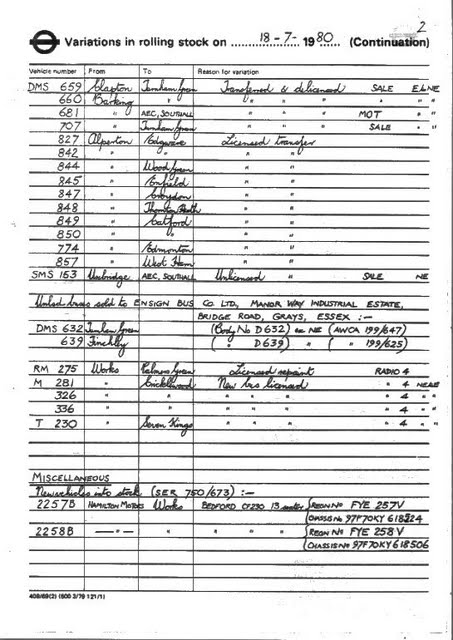 2
Variations in rolling stock on 18-7- 1980 (Continuation)
Vehicle number From To Reason for variation
DMS 659 Clapton Turnham Green Transferred & delicensed SALE E&NE
660 Barking " " " " " " "
681 " AEC, SOUTHALL " " " MOT " "
707 " Turnham Green " " " SALE " "
827 Alperton Edgware Licensed transfer
842 " " " "
844 " Wood Green " "
845 " Enfield " "
847 " Croydon " "
848 " Thornton Heath " "
849 " Catford " "
850 " " " "
774 " Edmonton " "
857 " West Ham " "
SMS 163 Uxbridge AEC, SOUTHALL Unlicensed " SALE NE
Unlicd buses sold to ENSIGN BUS CO LTD, MANOR WAY INDUSTRIAL ESTATE,
BRIDGE ROAD, GRAYS, ESSEX :-
DMS 632 Turnham Green (Body No D632) ex NE (AWCA 199/647)
639 Finchley ( " D639) " ( " 199/625)
RM 275 Works Palmers Green Licensed repaint RADIO 4
M 281 " Cricklewood New bus licensed " 4 NE&E
326 " " " " " " 4 " "
336 " " " " " " 4 " "
T 230 " Seven Kings " " " " 4 " "
MISCELLANEOUS
New vehicles into stock (SER 750/673) :-
2257B HAMILTON MOTORS Works BEDFORD CF230 13 seater (REGN No FYE 257V
(CHASSIS No 97F70KY 618524
2258B — " — " " " " (REGN No FYE 258V
(CHASSIS No 97F70KY 618506
408/69(2) (500 3/79 121/1)